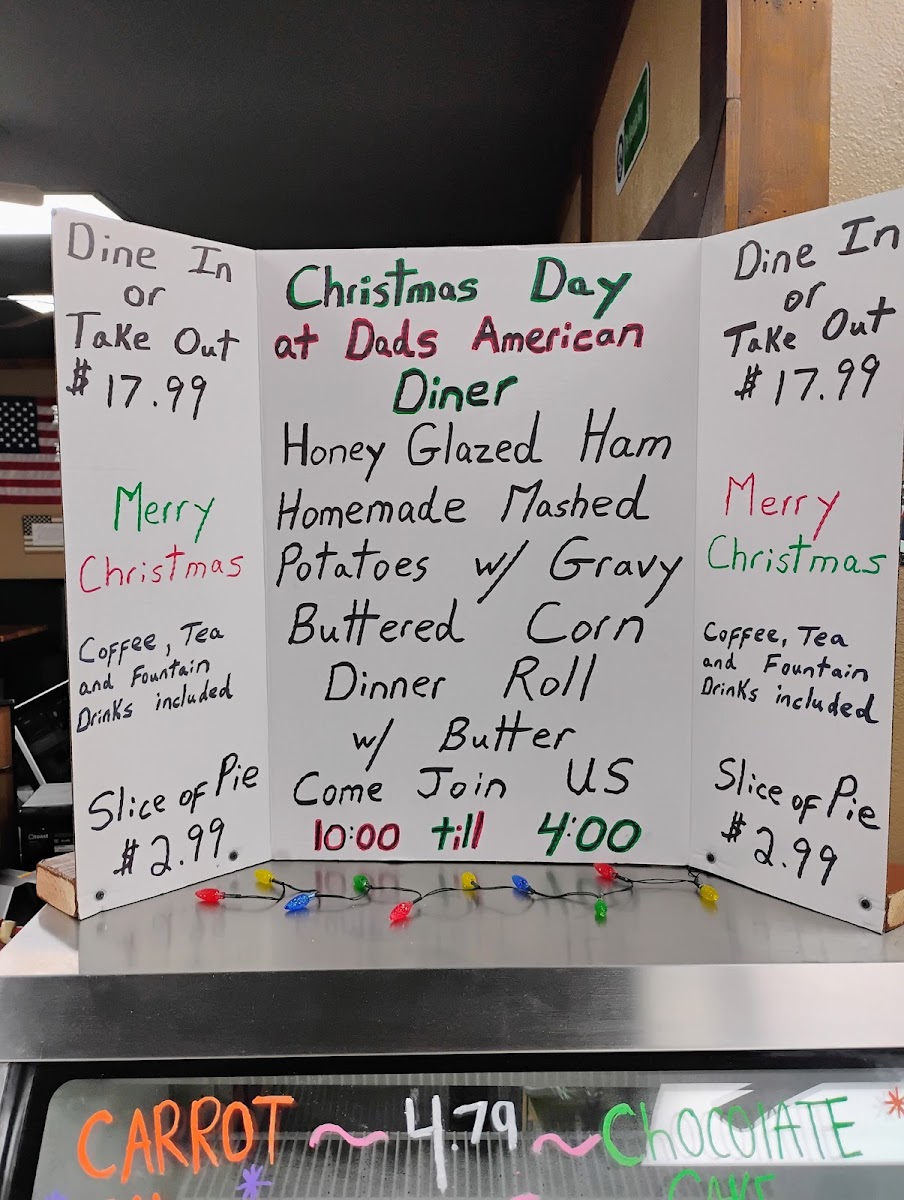 Dine In
or
Take Out
$17.99
Merry
Christmas
Coffee, Tea
and Fountain
Drinks included
Slice of Pie
$2.99
Christmas Day
at Dads American
Diner
Honey Glazed Ham
Homemade Mashed
Potatoes w/ Gravy
Buttered Corn
Dinner Roll
w/ Butter
Come Join US
10:00 till 4:00
Dine In
or
Take Out
$17.99
Merry
Christmas
Coffee, Tea
and Fountain
Drinks included
Slice of Pie
$2.99
CARROT ~ 4.79 ~ ChOCOlATE
CAKE